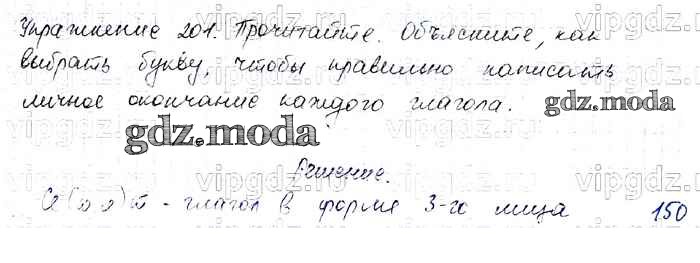 Упражнение 201. Прочитайте. Объясните, как
выбрать букву, чтобы правильно написать
личное окончание каждого глагола.
gdz.moda
gdz.moda
Решение.
- глагол в форме 3-го лица 150
vipgdz.ru